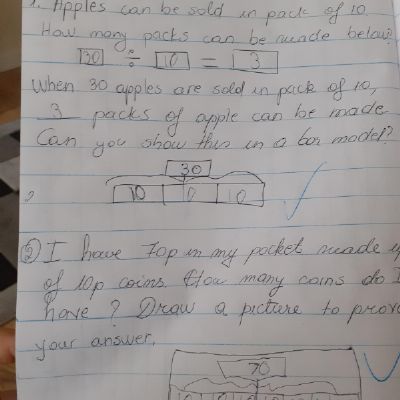 1. Apples can be sold in pack of 10.
How many packs can be made below?
30 ÷ 10 = 3
When 30 apples are sold in pack of 10,
3 packs of apple can be made
Can you show this in a bar model?
30
10 10 10
2 I have 70p in my pocket made up
of 10p coins. How many coins do I
have? Draw a picture to prove
your answer.
70
10 10 10 10